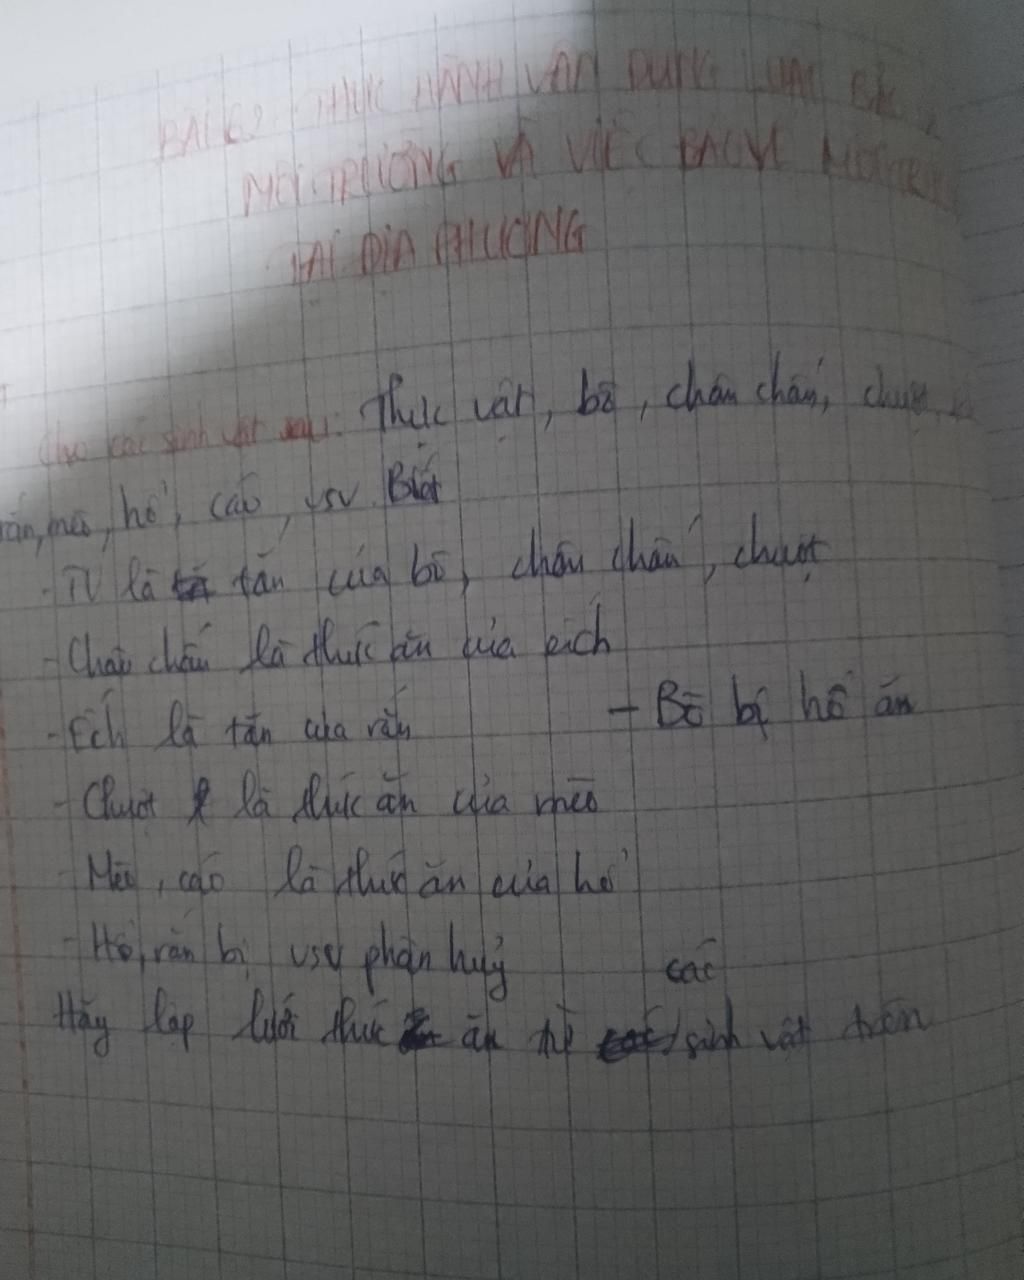 BÀI 62 THỰC HÀNH VẬN DỤNG LUẬT BV
MÔI TRƯỜNG VÀ VIỆC BẢO VỆ MÔI TRƯỜNG
TẠI ĐỊA PHƯƠNG
Cho các sinh vật sau: Thực vật, bò, châu chấu, chuột,
rắn, mèo, hổ, cáo, vsv. Biết
- TV là tăn của bò, châu chấu, chuột
- Châu chấu là thức ăn của ếch
- Ếch là tăn của rắn - Bò bị hổ ăn
- Chuột là thức ăn của mèo
- Mèo, cáo là thức ăn của hổ
- Hổ, rắn bị vsv phân huỷ
Hãy lập lưới thức ăn từ các sinh vật trên